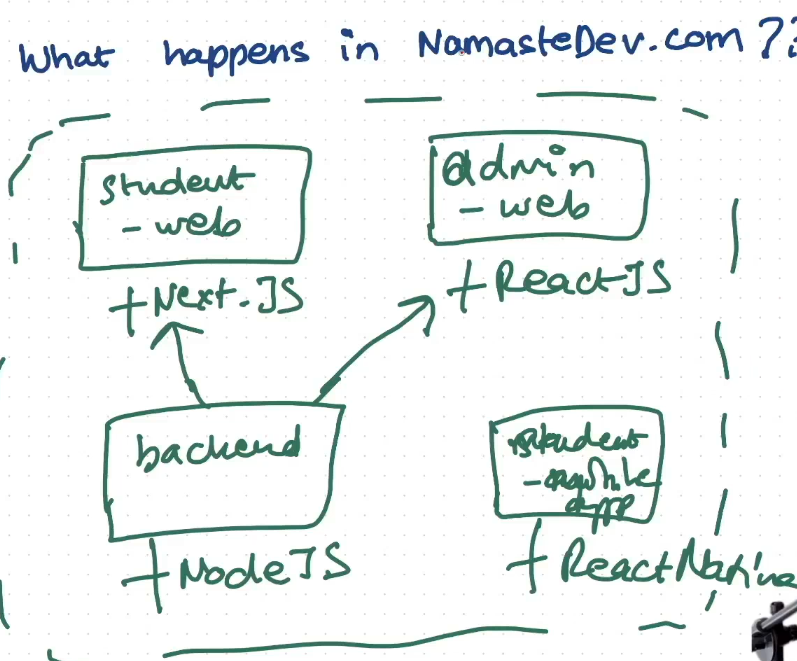 What happens in NamasteDev.com ??
student
- web
+ Next.JS
admin
- web
+ ReactJS
backend
+ NodeJS
student
- mobile
app
+ ReactNative